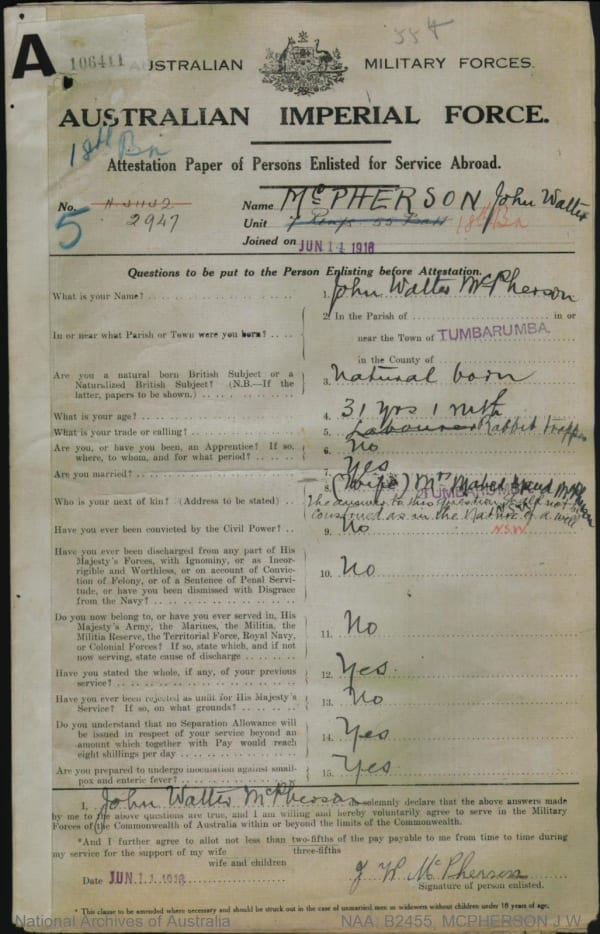 554
A
106411
AUSTRALIAN MILITARY FORCES.
AUSTRALIAN IMPERIAL FORCE.
18th Bn
Attestation Paper of Persons Enlisted for Service Abroad.
No. 2947
5
Name McPHERSON, John Walter
Unit 18th Bn
Joined on JUN 11 1916
Questions to be put to the Person Enlisting before Attestation.
What is your Name? 1. John Walter McPherson
In or near what Parish or Town were you born? 2. In the Parish of in or
near the Town of TUMBARUMBA.
in the County of
Are you a natural born British Subject or a
Naturalized British Subject? (N.B.—If the
latter, papers to be shown.) 3. Natural born
What is your age? 4. 31 yrs 1 mth
What is your trade or calling? 5. Labourer Rabbit trapper
Are you, or have you been, an Apprentice? If so,
where, to whom, and for what period? 6. No
Are you married? 7. Yes
Who is your next of kin? (Address to be stated) 8. (Wife) Mrs Mabel McPherson
TUMBARUMBA
The answer to this question should not be
construed as in the Nature of a will
N.S.W.
Have you ever been convicted by the Civil Power? 9. No
Have you ever been discharged from any part of His
Majesty's Forces, with Ignominy, or as Incor-
rigible and Worthless, or on account of Convic-
tion of Felony, or of a Sentence of Penal Servi-
tude, or have you been dismissed with Disgrace
from the Navy? 10. No
Do you now belong to, or have you ever served in, His
Majesty's Army, the Marines, the Militia, the
Militia Reserve, the Territorial Force, Royal Navy,
or Colonial Forces? If so, state which, and if not
now serving, state cause of discharge 11. No
Have you stated the whole, if any, of your previous
service? 12. Yes.
Have you ever been rejected as unfit for His Majesty's
Service? If so, on what grounds? 13. No
Do you understand that no Separation Allowance will
be issued in respect of your service beyond an
amount which together with Pay would reach
eight shillings per day 14. Yes
Are you prepared to undergo inoculation against small-
pox and enteric fever? 15. Yes
I, John Walter McPherson do solemnly declare that the above answers made
by me to the above questions are true, and I am willing and hereby voluntarily agree to serve in the Military
Forces of the Commonwealth of Australia within or beyond the limits of the Commonwealth.
*And I further agree to allot not less than two-fifths of the pay payable to me from time to time during
my service for the support of my wife three-fifths
wife and children
Date JUN 11 1916 J W McPherson
Signature of person enlisted.
* This clause to be amended where necessary and should be struck out in the case of unmarried men or widowers without children under 18 years of age.
National Archives of Australia NAA: B2455, MCPHERSON J W